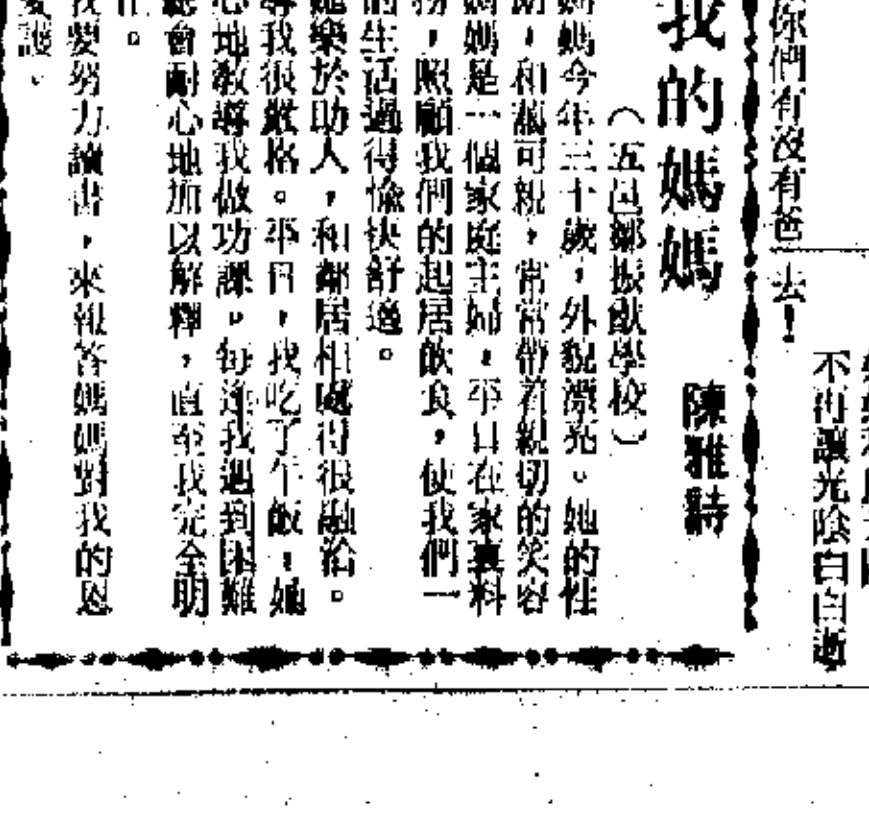 不再讓光陰白白逝
去！
你們有沒有爸
我的媽媽 陳雅詩
（五邑鄒振猷學校）
媽媽今年三十歲，外貌漂亮。她的性
，和藹可親，常常帶着親切的笑容
媽媽是一個家庭主婦，平日在家裏料
務，照顧我們的起居飲食，使我們一
的生活過得愉快舒適。
她樂於助人，和鄰居相處得很融洽。
導我很嚴格。平日，我吃了午飯，她
心地教導我做功課。每逢我遇到困難
總會耐心地加以解釋，直至我完全明
。
我要努力讀書，來報答媽媽對我的恩
愛護。